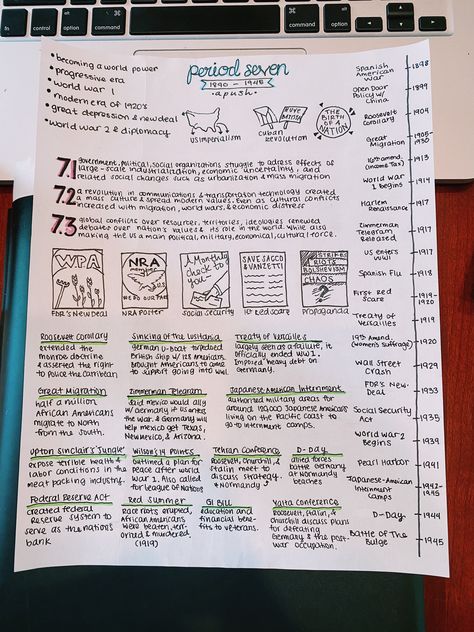 • becoming a world power
• progressive era
• world war 1
• modern era of 1920's
• great depression & new deal
• world war 2 & diplomacy
period seven
1890 - 1945
-apush-
US imperialism
Cuban Revolution
THE BIRTH OF A NATION
7.1 government, political, social organizations struggle to adress effects of
large-scale industrialization, economic uncertainty, and
related social changes such as urbanization & mass migration
7.2 a revolution in communications & transportation technology created
a mass culture & spread modern values. Even as cultural conflicts
increased with migration, world wars, & economic distress
7.3 global conflicts over resources, territories, ideologies renewed
debates over nation's values & its role in the world. While also
making the US a main political, military, economical, cultural force.
WPA
FDR's New Deal
NRA
WE DO OUR PART
NRA POSTER
Monthly check to you
Social Security
SAVE SACCO & VANZETTI
1st red scare
STRIKES
RIOTS
BOLSHEVISM
CHAOS
?
propaganda
Roosevelt Corollary
extended the
monroe doctrine
& asserted the right
to police the carribean
Sinking of the Lusitania
german U-Boat torpedoed
British ship w/ 128 americans
brought Americans to come
to support going into WWI
Treaty of Versailles
largely seen as a failure, it
officially ended WW1.
Imposed heavy debt on
germany.
Great Migration
half a million
African Americans
migrate to North
from the south.
Zimmerman Telegram
said mexico would ally
w/ Germany if US enters
the war. & Germany will
help mexico get Texas,
New mexico, & Arizona.
Japanese-American Internment
authorized military areas for
around 120,000 Japanese Americans
living on the Pacific coast to
go to internment camps.
Upton Sinclair's 'Jungle'
expose terrible health &
labor conditions in the
meat packing industry.
Wilson's 14 Points
outlined a plan for
peace after world
war 1. Also called
for league of Nations
Tehran Conference
Roosevelt, Churchill, &
Stalin meet to
discuss strategy
& Normandy
D-Day
allied forces
battle Germany
at Normandy
beaches
Federal Reserve Act
created federal
Reserve system to
serve as the nation's
bank
Red Summer
Race riots erupted,
African Americans
were beaten, terr-
orized & murdered.
(1919)
GI Bill
education and
financial bene-
fits to veterans.
Yalta Conference
Roosevelt, Stalin, &
Churchill discuss plans
for defeating
Germany & the post-
war occupation.
Spanish American war 1898
Open Door Policy w/ China 1899
Roosevelt Corollary 1904
Great Migration 1905-1930
16th amend. (income Tax) 1913
World War 1 begins 1914
Harlem Renaissance 1917
Zimmerman Telegram Released 1917
US enters WWI 1917
Spanish Flu 1918
First Red Scare 1919-1920
Treaty of Versailles 1919
19th Amend. (women's Suffrage) 1920
Wall Street Crash 1929
FDR's New Deal 1933
Social Security Act 1935
World War 2 Begins 1939
Pearl Harbor 1941
Japanese-American Internment Camps 1942-1945
D-Day 1944
Battle Of The Bulge 1945